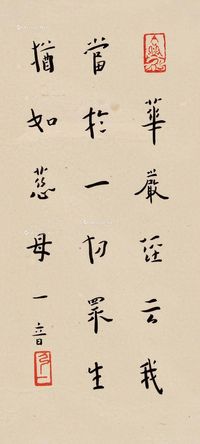 華嚴經云我
當於一切眾生
猶如慈母一音